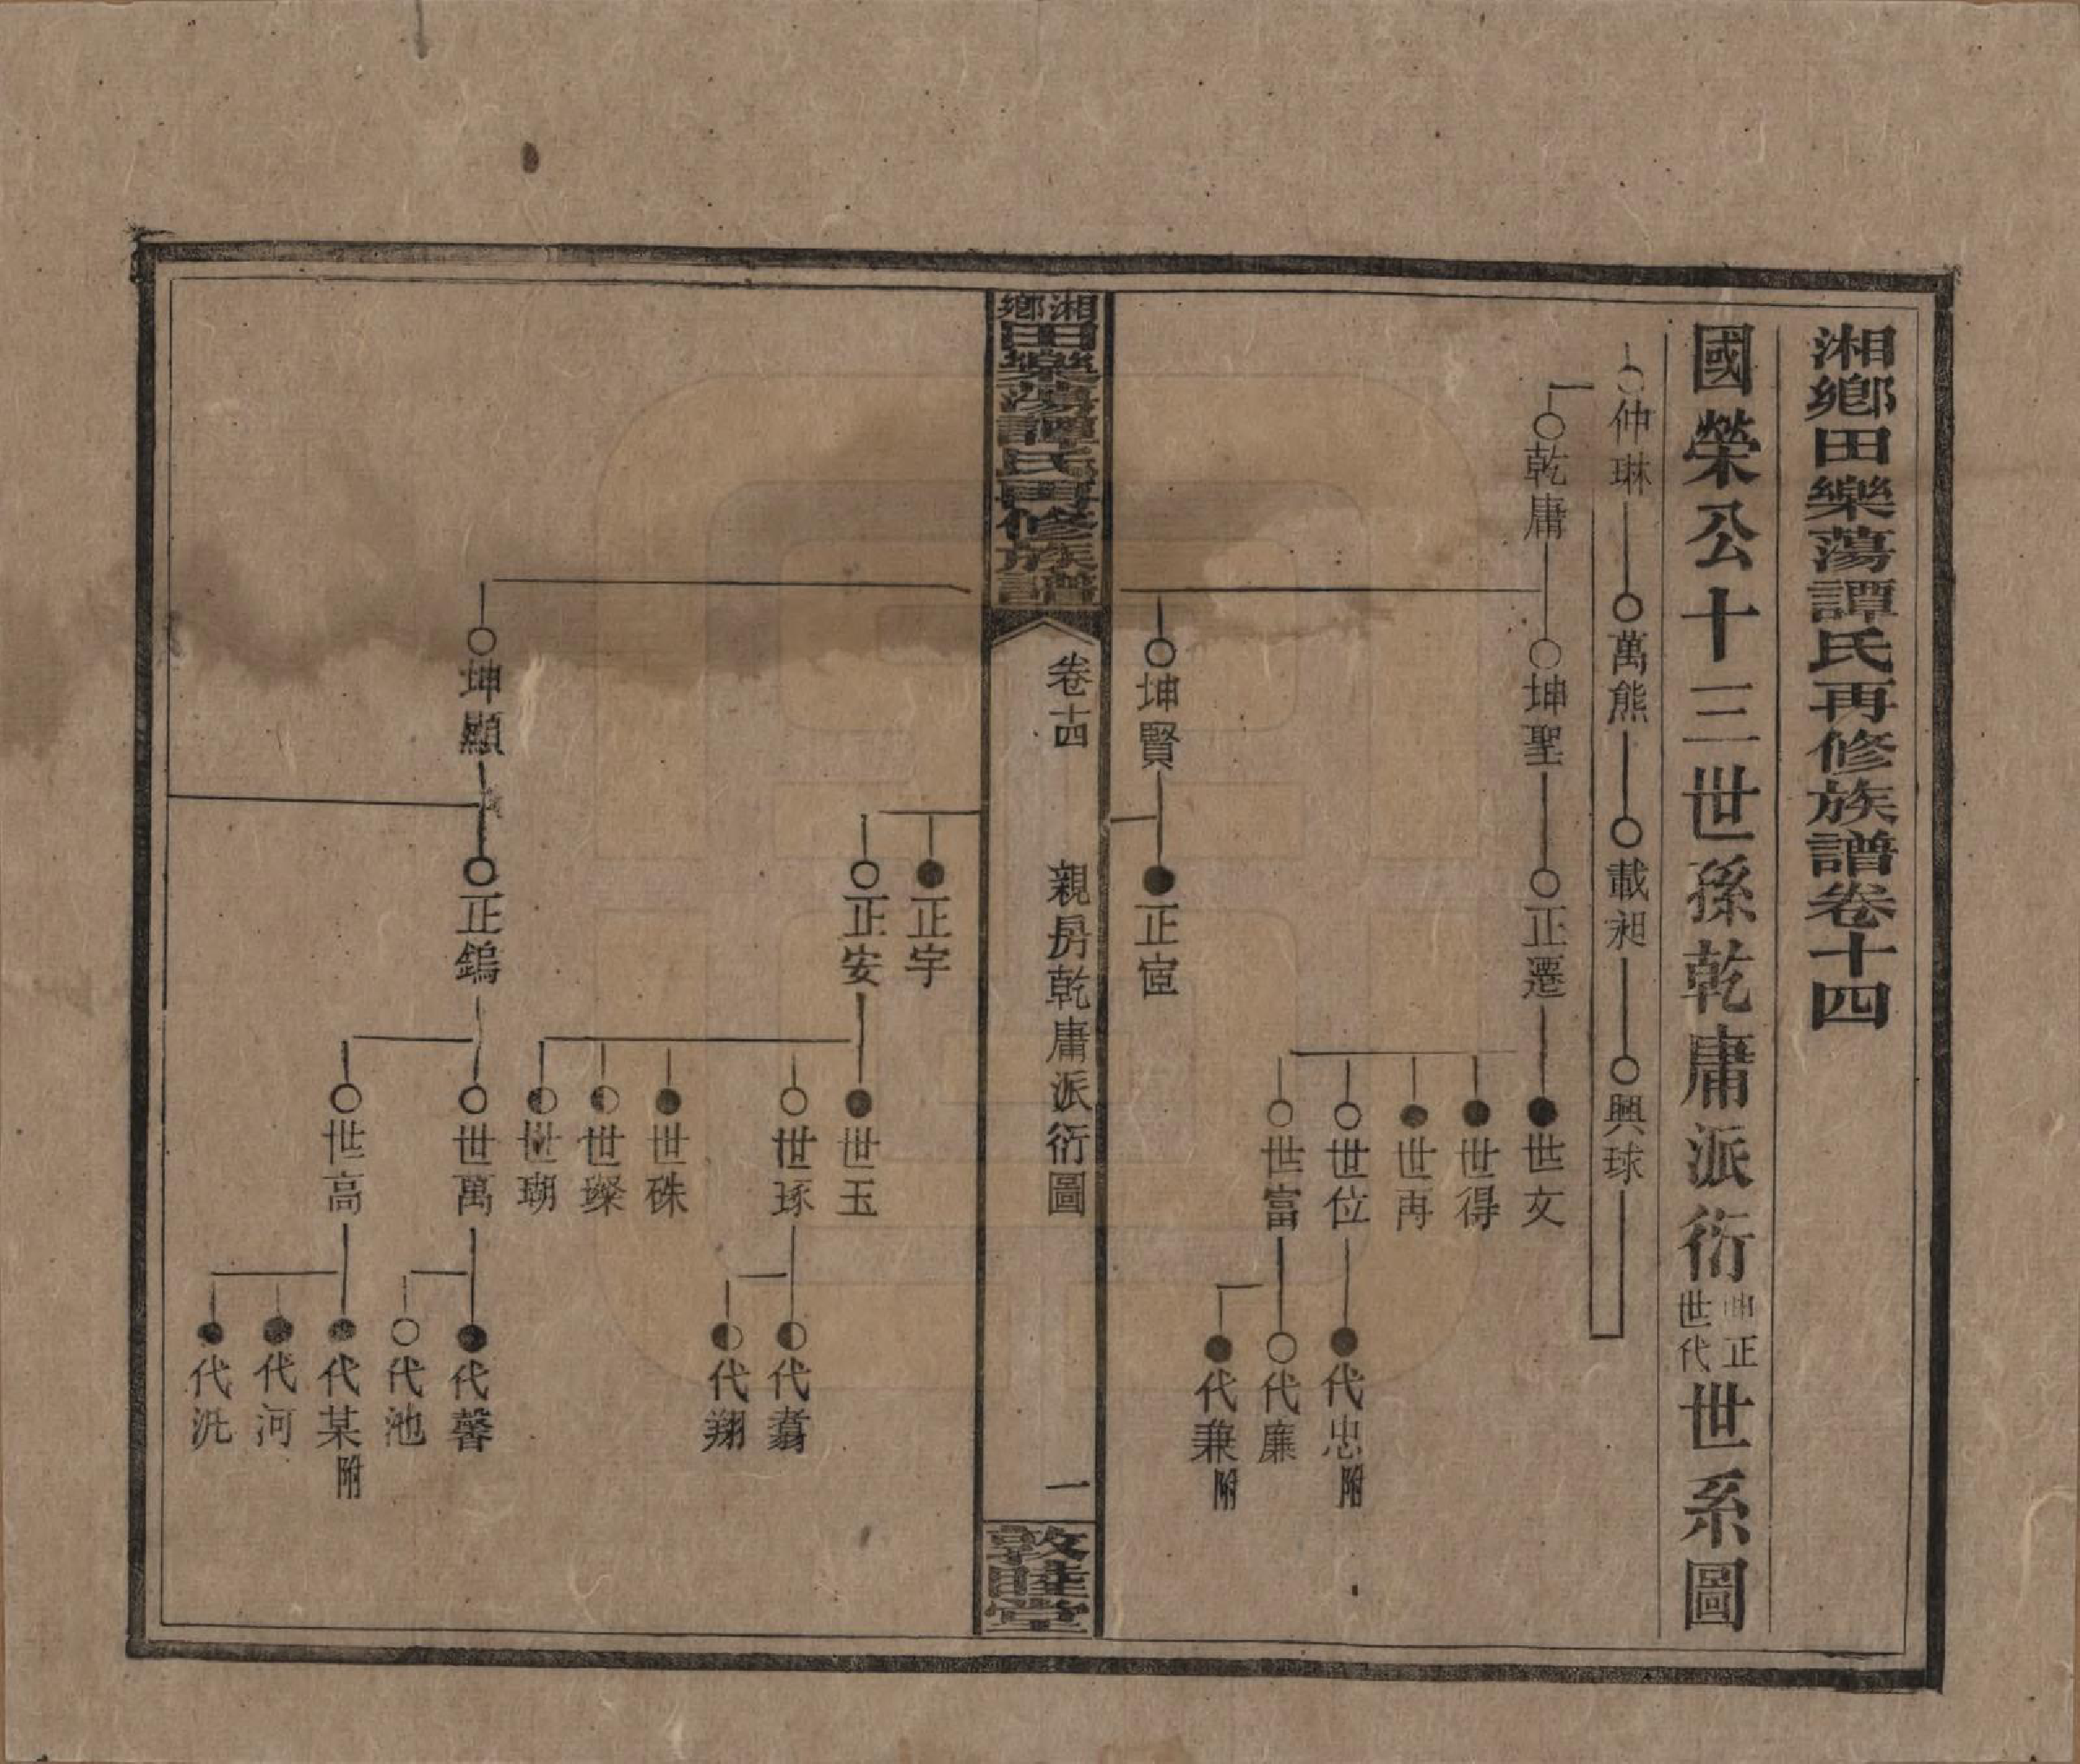 湘鄉田樂蕩譚氏再修族譜卷十四
國榮公十三世孫乾庸派衍坤正世代世系圖
仲琳
萬熊
載昶
興球
乾庸
坤聖
正遷
世文
世得
世再
世位
代忠附
世富
代廉
代兼附
坤賢
正宧
湘鄉田樂蕩譚氏再修族譜
卷十四
親房乾庸派衍圖
一
敦睦堂
正宇
正安
世玉
世琢
代翥
代翔
世硃
世璨
世瑚
坤顯
正鎢
世萬
代馨
代池
世高
代某附
代河
代沇